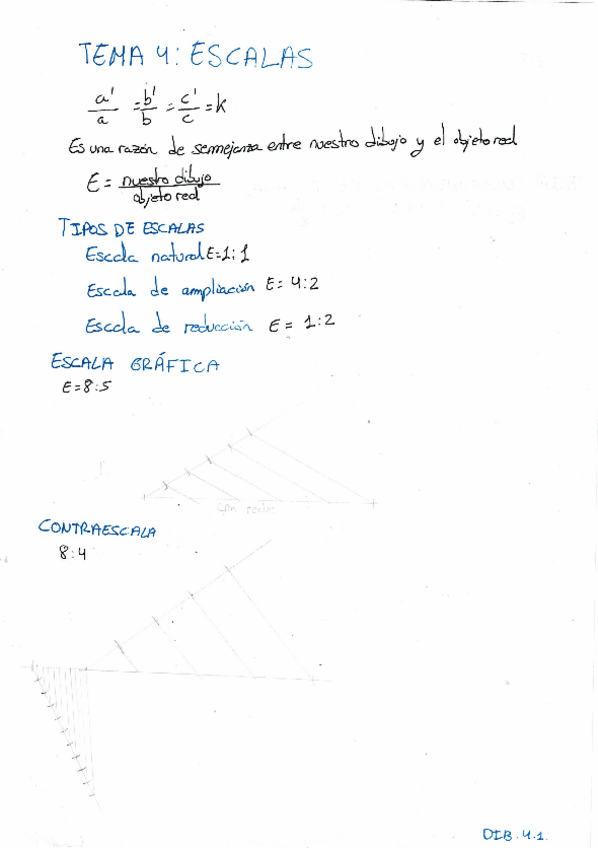 TEMA 4: ESCALAS
a'/a = b'/b = c'/c = k
Es una razón de semmejanza entre nuestro dibujo y el objeto real
E = nuestro dibujo / objeto real
TIPOS DE ESCALAS
Escala natural E=1:1
Escala de ampliación E= 4:2
Escala de reducción E = 1:2
ESCALA GRÁFICA
E=8:5
CONTRAESCALA
8:4
DIB.4.1.